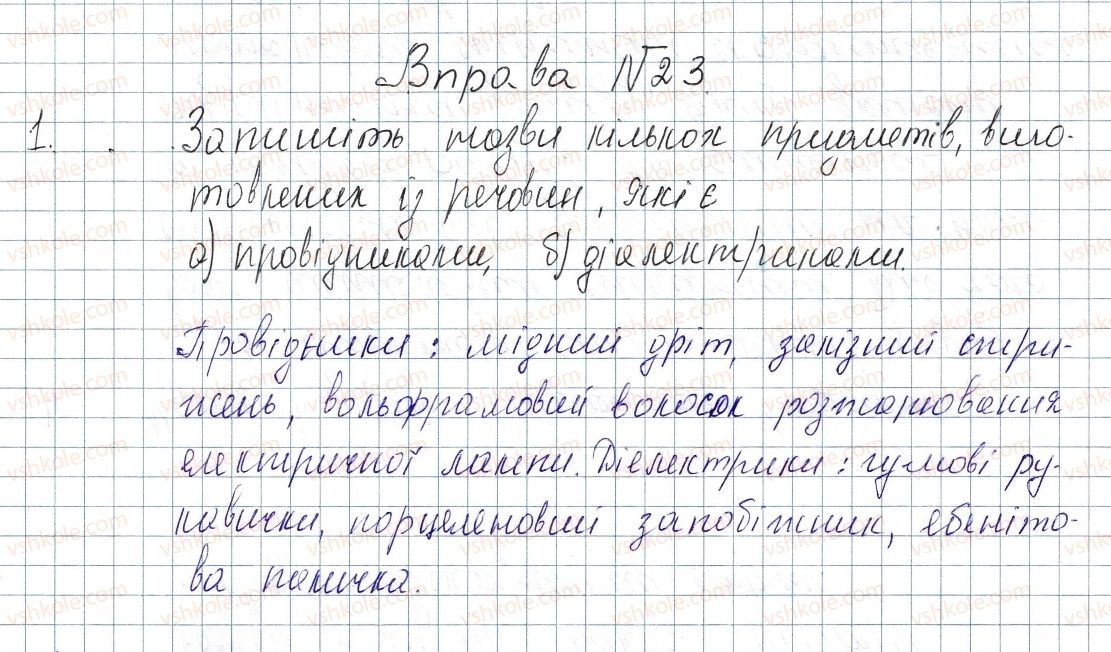 Вправа №23.
1. Запишіть назви кількох предметів, виго-
товлених із речовин, які є
а) провідниками, б) діалектриками.
Провідники: мідний дріт, залізний стри-
жень, вольфрамовий волосок розжарювання
електричної лампи. Діелектрики: гумові ру-
кавички, порцеляновий запобіжник, ебоніто-
ва паличка.